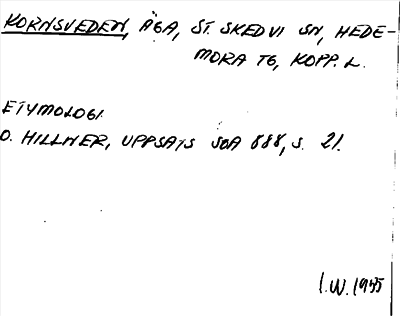 KORNSVEDEN, ÄGA, ST. SKEDVI SN, HEDE-
MORA TG, KOPP. L.
ETYMOLOGI
O. HILLNER, UPPSATS SOA 888, S. 21.
I.W. 1955